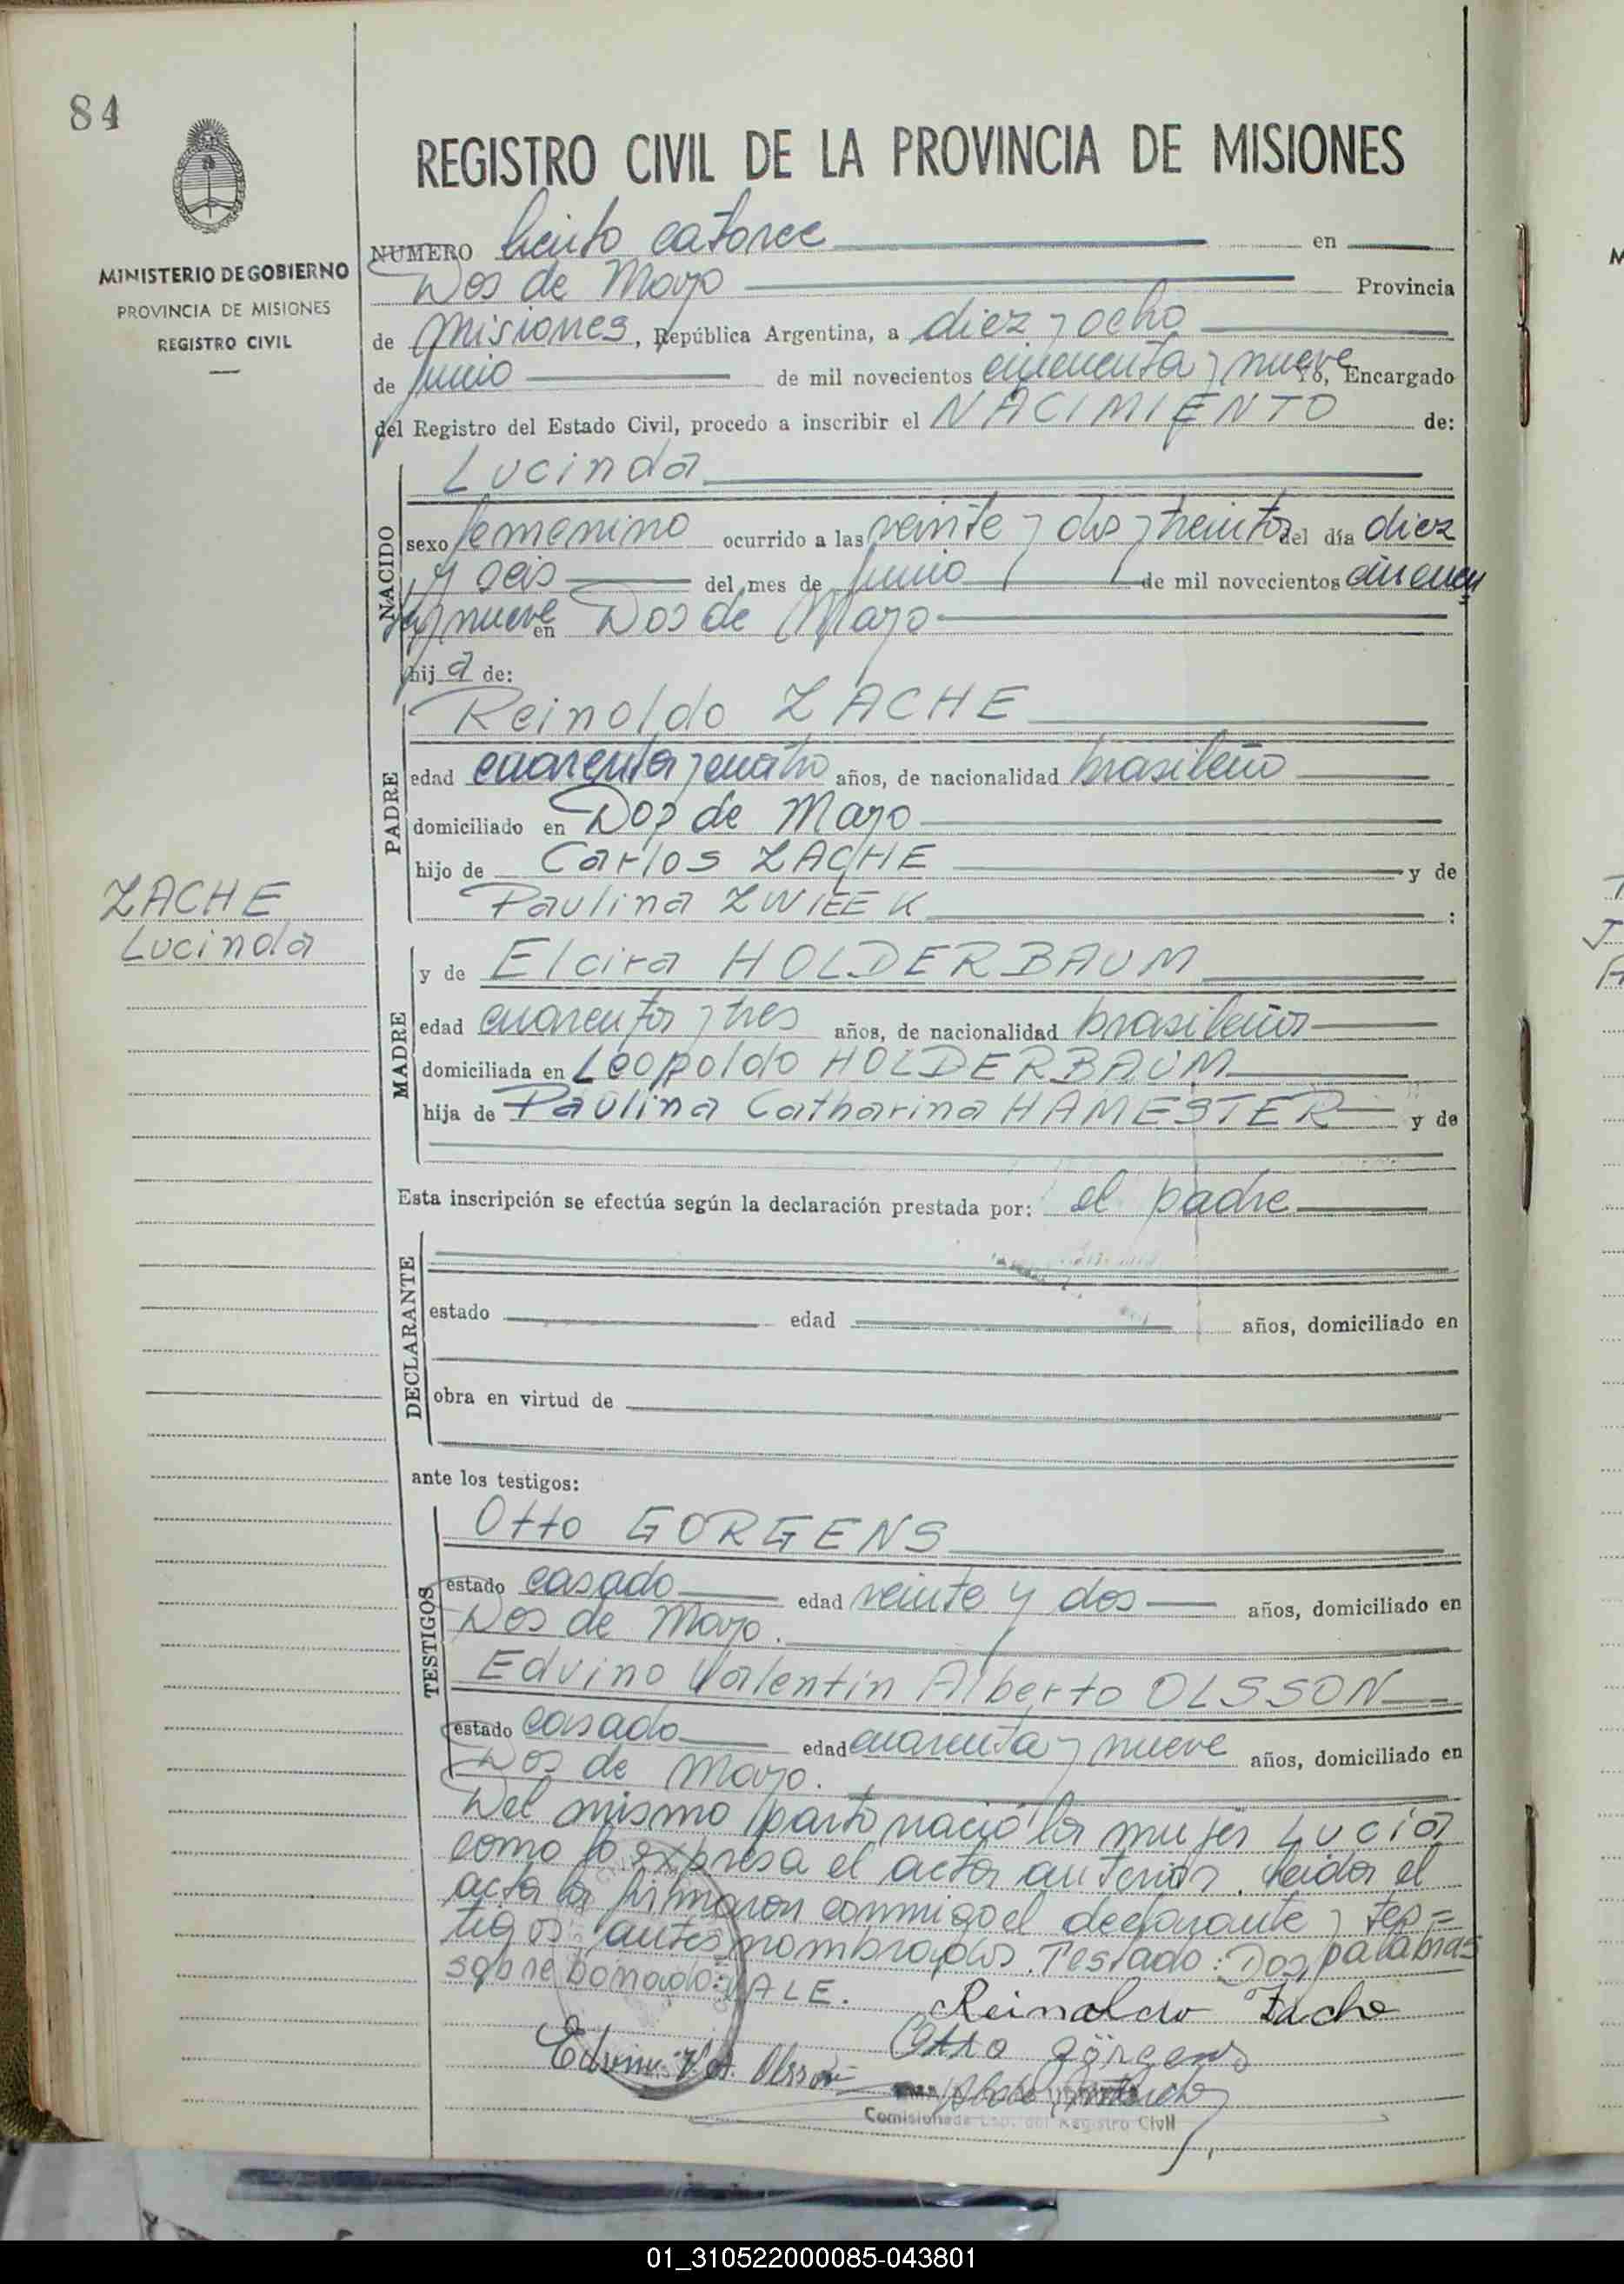 84
MINISTERIO DE GOBIERNO
PROVINCIA DE MISIONES
REGISTRO CIVIL
REGISTRO CIVIL DE LA PROVINCIA DE MISIONES
NUMERO Ciento catorce en
Dos de Mayo Provincia
de Misiones, República Argentina, a diez y ocho
de Junio de mil novecientos cincuenta y nueve Yo, Encargado
del Registro del Estado Civil, procedo a inscribir el NACIMIENTO de:
Lucinda
NACIDO
sexo femenino ocurrido a las veinte y dos y treinta del día diez
y seis del mes de Junio de mil novecientos cincuen
ta y nueve en Dos de Mayo
hija de:
Reinoldo ZACHE
PADRE
edad cuarenta y cuatro años, de nacionalidad brasileño
domiciliado en Dos de Mayo
hijo de Carlos ZACHE y de
Paulina ZWIEEK :
ZACHE
Lucinda
y de Elcira HOLDERBAUM
MADRE
edad cuarenta y tres años, de nacionalidad brasileña
domiciliada en Leopoldo HOLDERBAUM
hija de Paulina Catharina HAMESTER y de
Esta inscripción se efectúa según la declaración prestada por: el padre
DECLARANTE
estado edad años, domiciliado en
obra en virtud de
ante los testigos:
Otto GORGENS
TESTIGOS
estado casado edad veinte y dos años, domiciliado en
Dos de Mayo.
Edvino Valentín Alberto OLSSON
estado casado edad cuarenta y nueve años, domiciliado en
Dos de Mayo.
Del mismo parto nació la mujer Lucía
como lo expresa el acta anterior. Leida el
acta la firmaron conmigo el declarante y tes=
tigos antes nombrados. Testado: Dos palabras
sobre borrado: VALE.
Reinaldo Zache
Otto Görgens
Edvino V. A. Olsson
Comisionada Esp. del Registro Civil
01_310522000085-043801